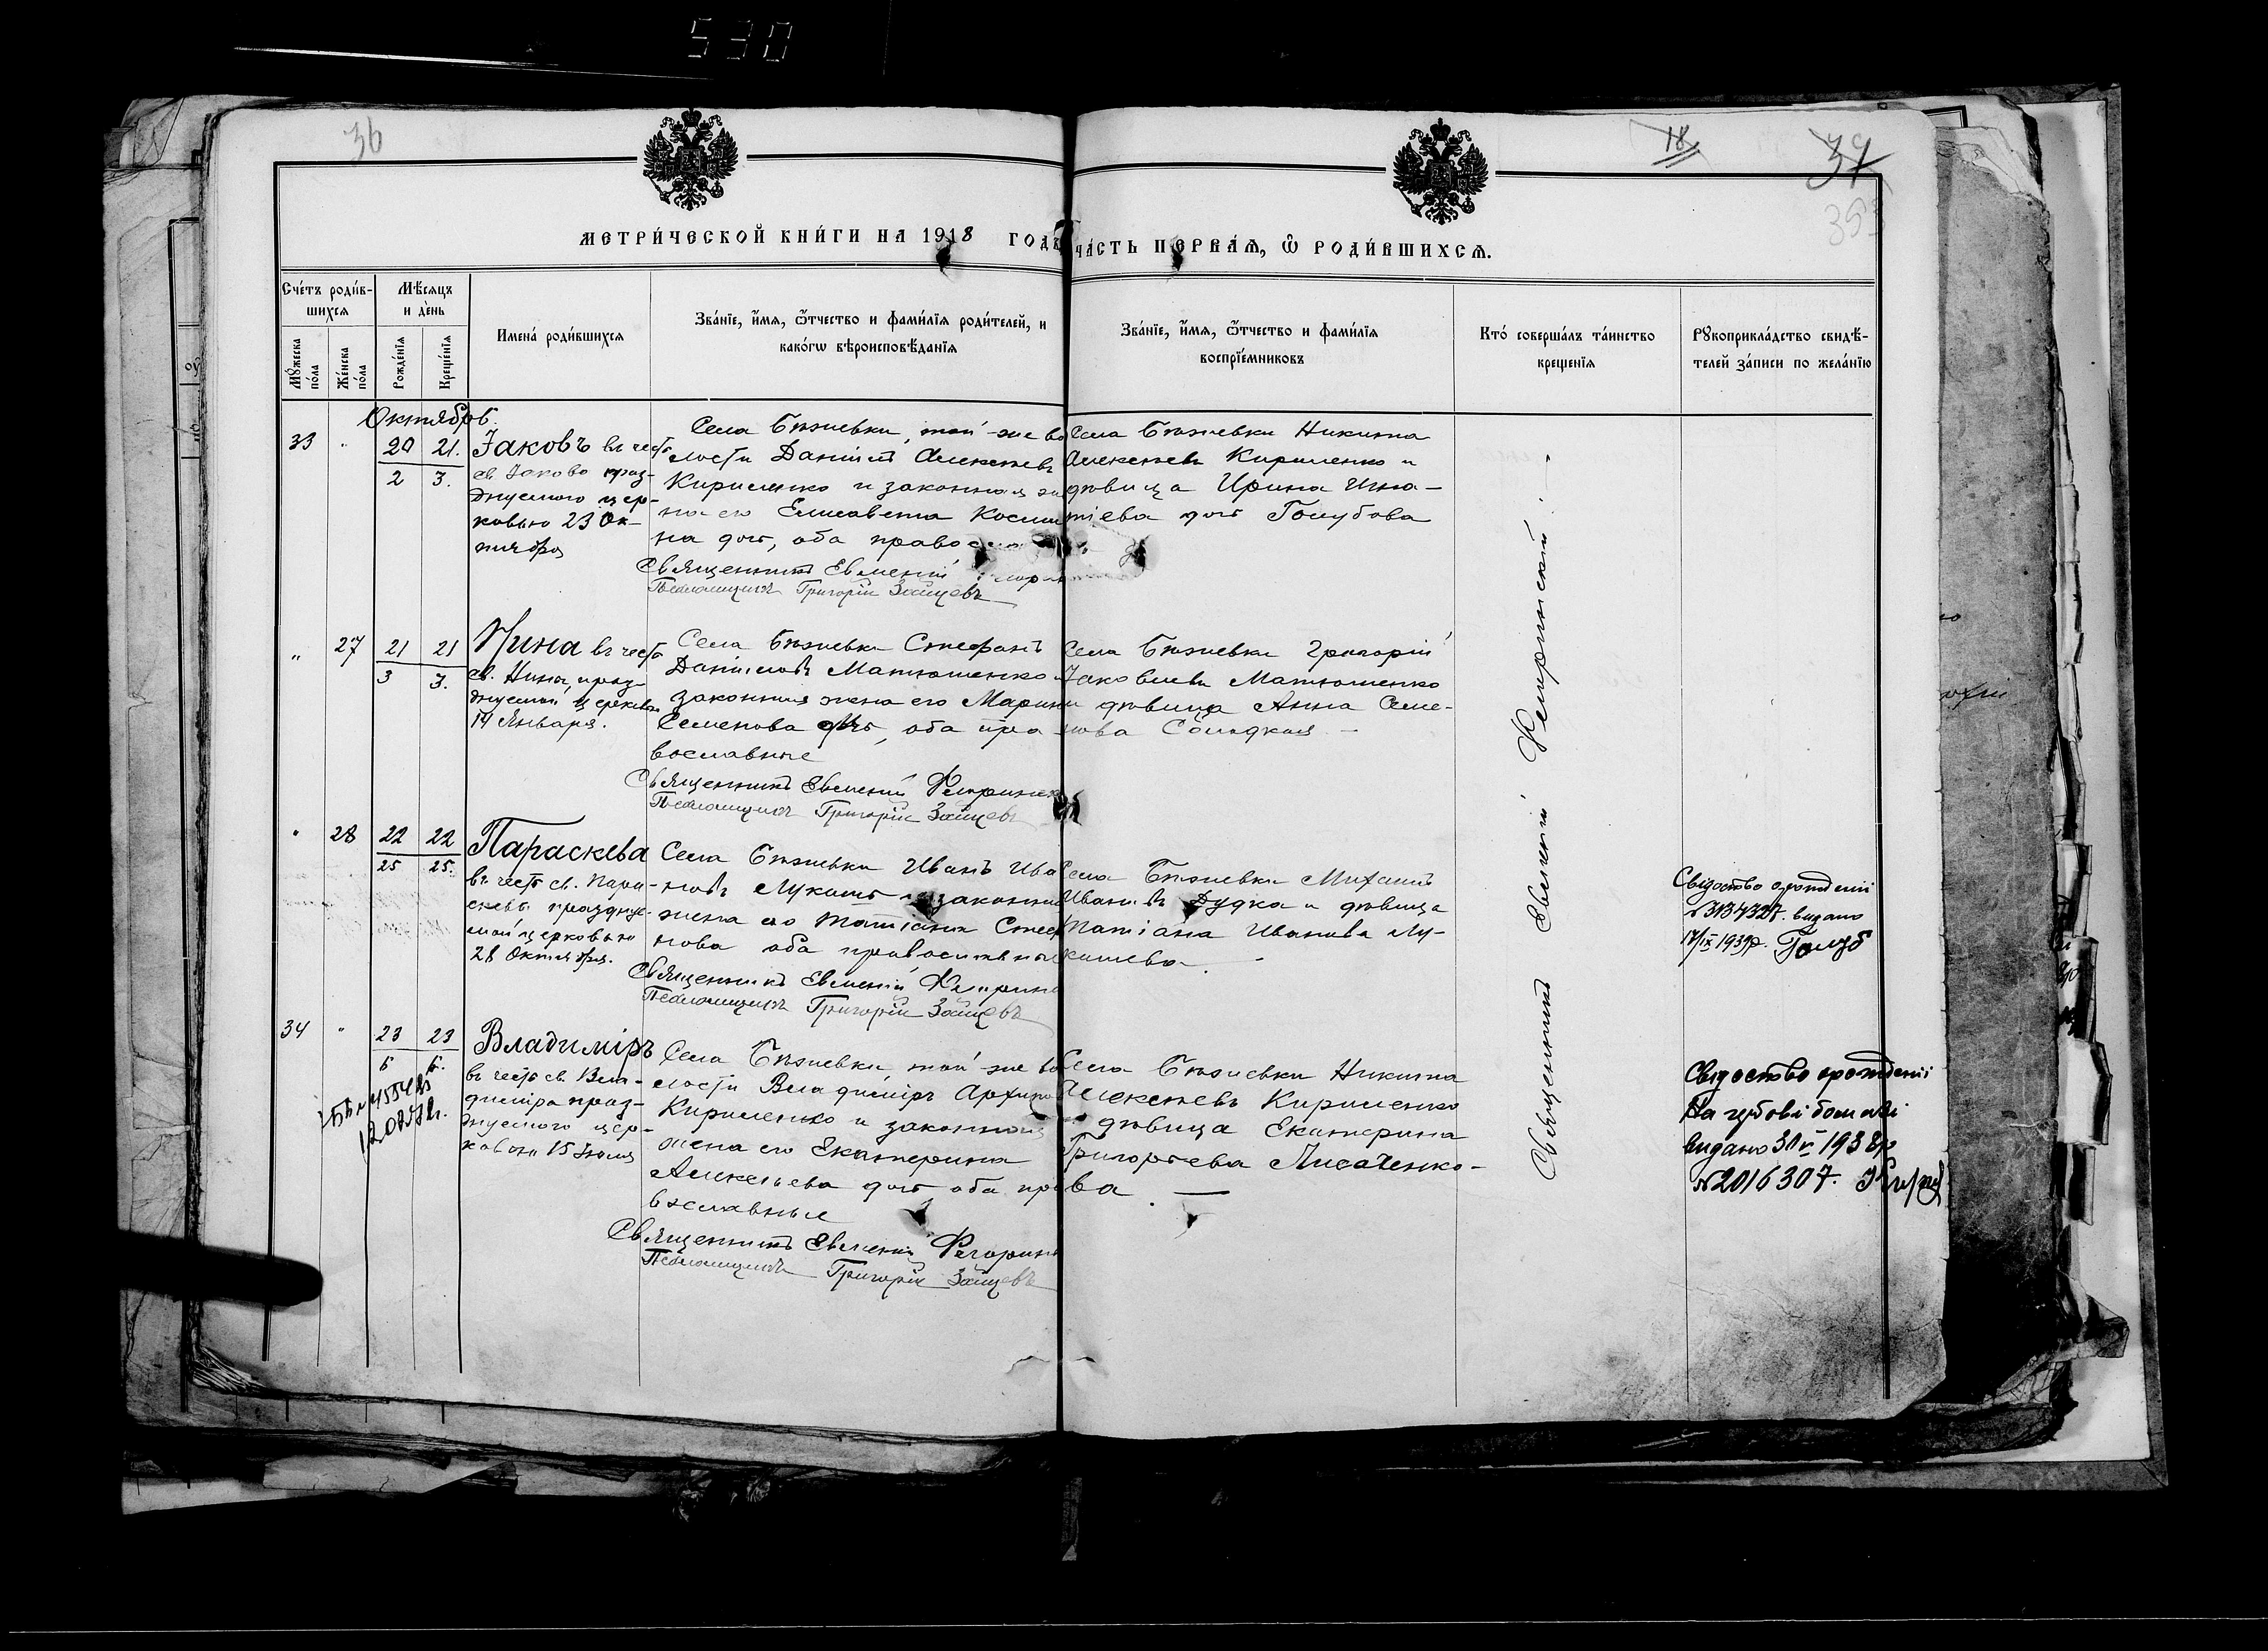 530
36
18
37
МЕТРИ́ЧЕСКОЙ КНИ́ГИ НА 1918 ГОДЪ
ЧА́СТЬ ПЕ́РВАѦ, Ѽ РОДИ́ВШИХСѦ.
Сче́тъ роди́в-
шихсѧ
Мꙋ́жеска по́ла
Же́нска по́ла
Мѣ́сѧцъ
и де́нь
Рожде́нїѧ
Креще́нїѧ
Имена́ роди́вшихсѧ
Зва́нїе, и́мѧ, ѻ́тчество и фами́лїѧ роди́телей, и
како́гѡ вѣроисповѣ́данїѧ
Зва́нїе, и́мѧ, ѻ́тчество и фами́лїѧ
воспрїе́мниковъ
Кто́ соверша́лъ та́инство
креще́нїѧ
Рꙋкоприкла́дство свидѣ́-
телей за́писи по жела́нїю
Октябрь.
33 " 20 21.
2 3.
Іаковъ въ честь
св. Іакова праз-
днуемаго цер-
ковью 23 Ок-
тября
Села Бѣжевки, той-же во
лости Даніилъ Алексѣевъ
Кириленко и законная же
на его Елисавета Косми
на дочь, оба правос
Священникъ Евменій
Псаломщикъ Григорій Зайцевъ
Села Бѣжевки Никита
Алексѣевъ Кириленко и
дѣвица Ирина Игна-
тіева дочь Голубова
" 27 21 21
3 3.
Нина въ честь
св. Нины, праз-
днуемой церковью
14 Января.
Села Бѣжевки Стефанъ
Даніиловъ Матюшенко и
законная жена его Марина
Семенова дочь, оба пра-
вославные
Священникъ Евменій
Псаломщикъ Григорій Зайцевъ
Села Бѣжевки Григорій
Іаковлевъ Матюшенко
и дѣвица Анна Семе-
нова Солодкая
" 28 22 22
25 25.
Параскева
въ честь св. Пара-
скевы праздну-
мой церковью
28 Октября.
Села Бѣжевки Иванъ Ива
новъ и законная
жена его Татіана Стеф
нова оба православные
Священникъ Евменій
Псаломщикъ Григорій Зайцевъ
Села Бѣжевки Михаилъ
Ивановъ Дудка и дѣвица
Татіана Иванова Лу-
кашева.
Свідоство о рожденіі
№ 3134327. видано
17/IX 1939р. Голуб
34 " 23 23
Владиміръ
въ честь св. Вла-
диміра праз-
днуемаго цер-
ковью 15 Іюля
Села Бѣжевки, той-же во
лости Владиміръ Архипо
Кириленко и законная
жена его Екатерина
Алексѣева дочь оба пра
вославные
Священникъ Евменій
Псаломщикъ Григорій Зайцевъ
Села Бѣжевки Никита
Алексѣевъ Кириленко
и дѣвица Екатерина
Григорьева Лисаченко-
ва.
Свідоство о рожденіі
видано 1938р
№ 2016307.
Священникъ Евменій